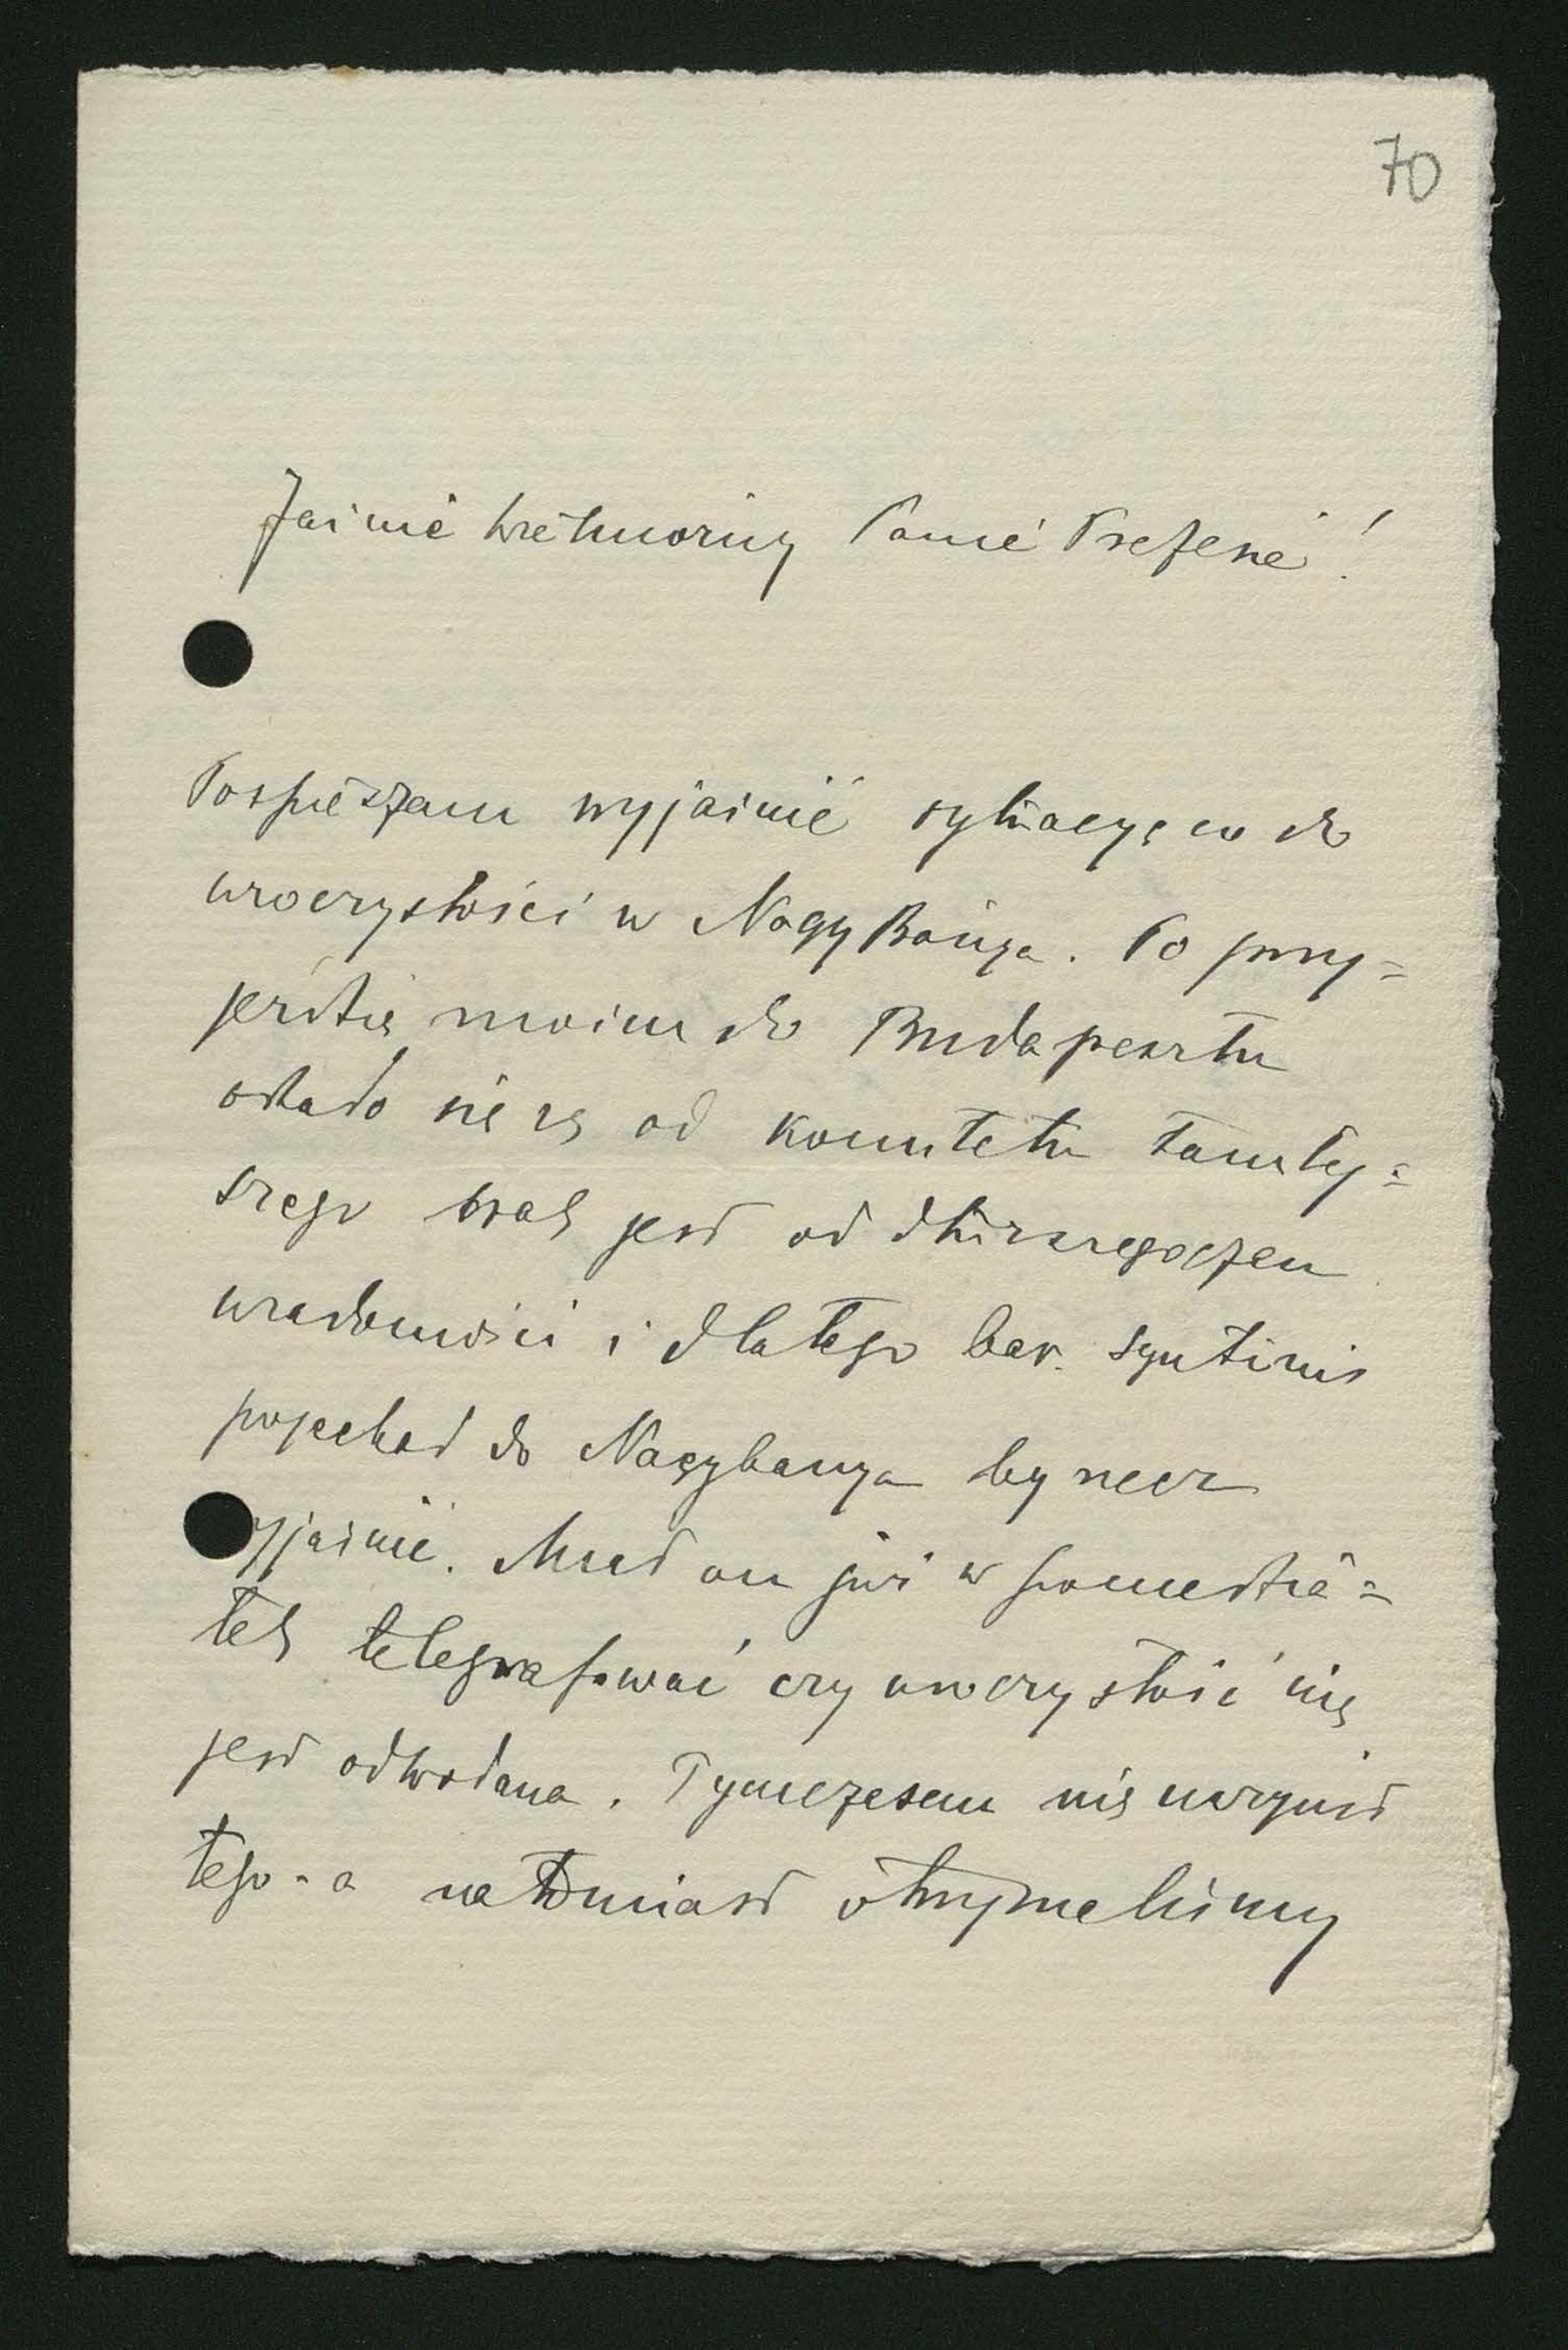 70
Jaśnie Wielmożny Panie Prezesie!
Pospieszam wyjaśnić sytuacyę co do
uroczystości w Nagy Bánya. Po przy=
jeździe moim do Budapesztu
okazało się że od komitetu tamtej=
szego brak jest od dłuższego czasu
wiadomości i dlatego bar. Syntinis
pojechał do Nagybanya by rzecz
wyjaśnić. Miał on już w poniedzia=
łek telegrafować czy uroczystość nie
jest odwołana. Tymczasem nie uczynił
tego - a natomiast otrzymaliśmy